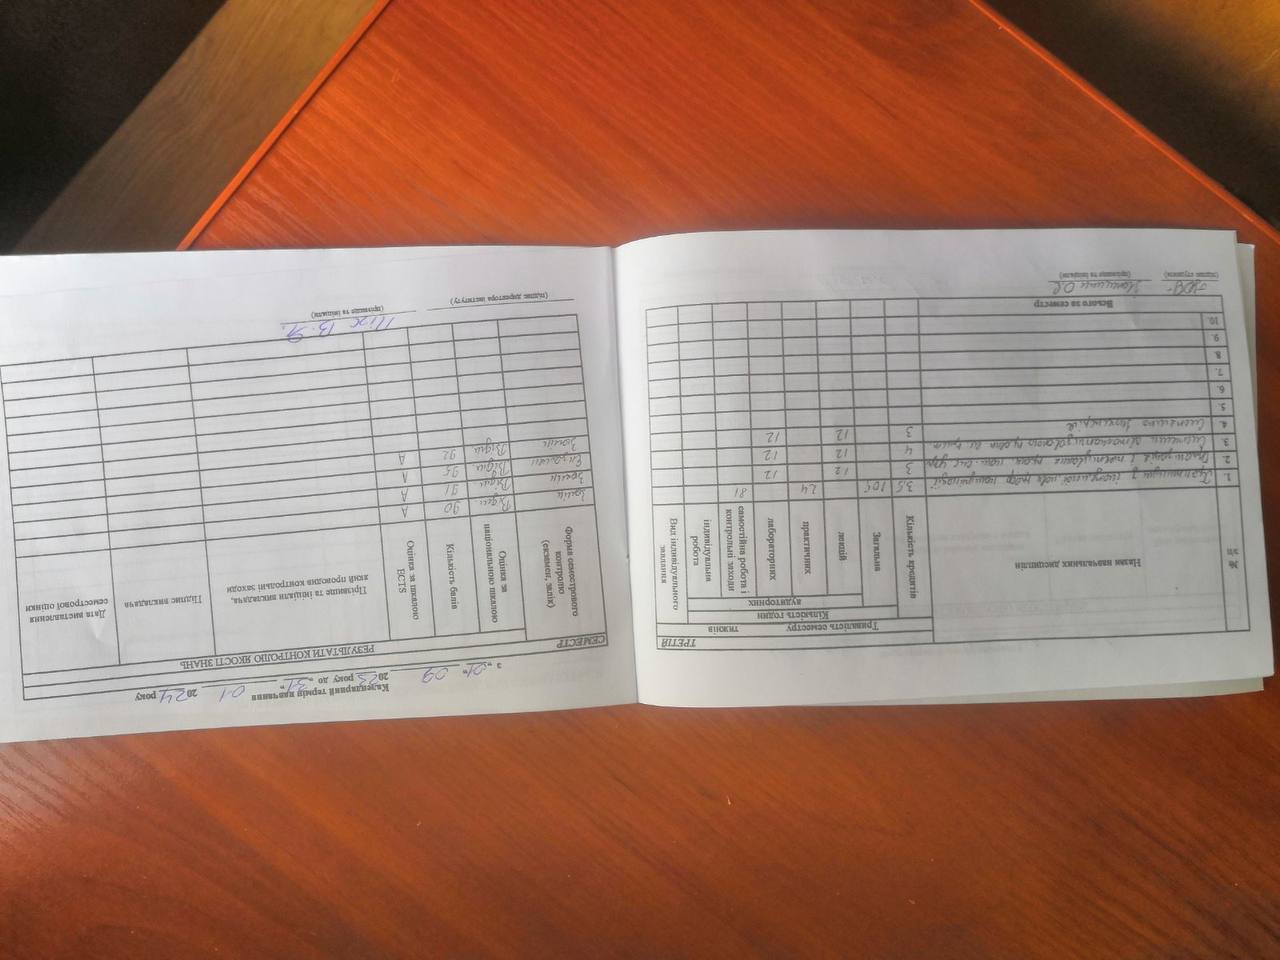 ТРЕТІЙ
Тривалість семестру тижнів
№ з/п
Назви навчальних дисциплін
Кількість кредитів
Кількість годин
Загальна
аудиторних
лекцій
практичних
лабораторних
самостійна робота і контрольні заходи
індивідуальна робота
Вид індивідуального завдання
1. Практикум з іноземної мови 3,5 105 24 81
2. і 3 12 12
3. Системи автоматизованого 4 12 12
4. Системна інженерія 3 12 12
5.
6.
7.
8.
9.
10.
Всього за семестр
О.С
(підпис студента) (прізвище та ініціали)
Календарний термін навчання
з „01” 09 2023 року до „31” 01 2024 року
СЕМЕСТР
РЕЗУЛЬТАТИ КОНТРОЛЮ ЯКОСТІ ЗНАНЬ
Форма семестрового контролю (екзамен, залік)
Оцінка за національною шкалою
Кількість балів
Оцінка за шкалою ECTS
Прізвище та ініціали викладача, який проводив контрольні заходи
Підпис викладача
Дата виставлення семестрової оцінки
Залік Відм. 90 A
Залік Відм. 91 A
Екзамен Відм. 95 A
Залік Відм. 92 A
Піх В.Я.
(підпис директора інституту) (прізвище та ініціали)